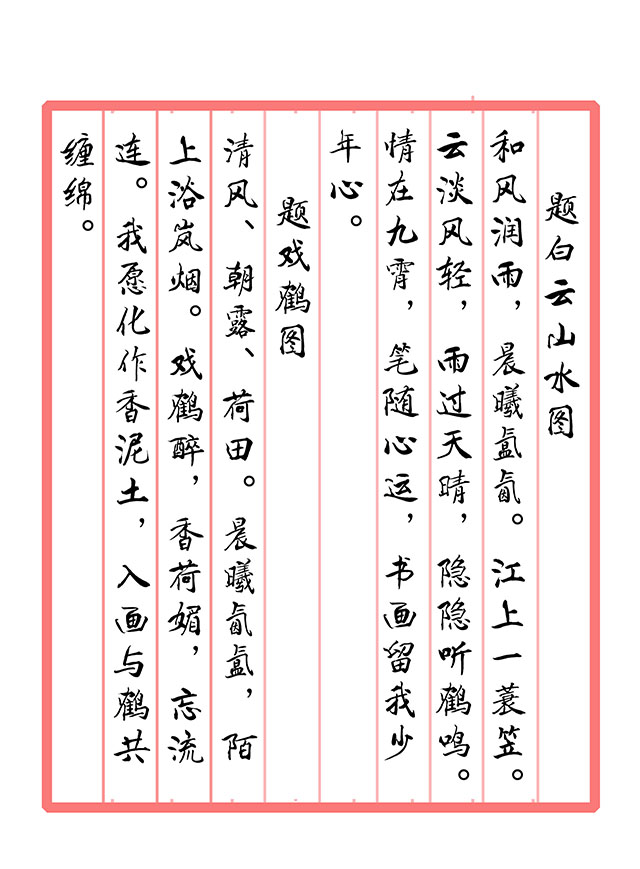 题白云山水图
和风润雨，晨曦氲氤。江上一蓑笠。
云淡风轻，雨过天晴，隐隐听鹤鸣。
情在九霄，笔随心运，书画留我少
年心。
题戏鹤图
清风、朝露、荷田。晨曦氤氲，陌
上浴岚烟。戏鹤醉，香荷媚，忘流
连。我愿化作香泥土，入画与鹤共
缠绵。